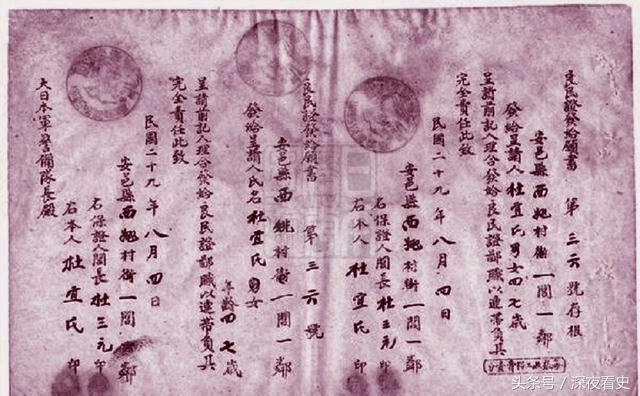 良民證發給願書 第三六號存根
安邑縣西姚村街一閭一鄰
發給呈請人杜宜氏男女四七歲
呈請前記人理合發給良民證鄙職以連帶負其
完全責任此致
民國二十九年八月四日
安邑縣西姚村街一閭一鄰
右保證人閭長杜三元 印
右本人杜宜氏 印
良民證發給願書 第三六號
安邑縣西姚村街一閭一鄰
發給呈請人民名杜宜氏男女
年齡四七歲
呈請前記人理合發給良民證鄙職以連帶負其
完全責任此致
民國二十九年八月四日
安邑縣西姚村街一閭一鄰
右保證人閭長杜三元 印
右本人杜宜氏 印
大日本軍警備隊長殿
头条号 / 深夜看史